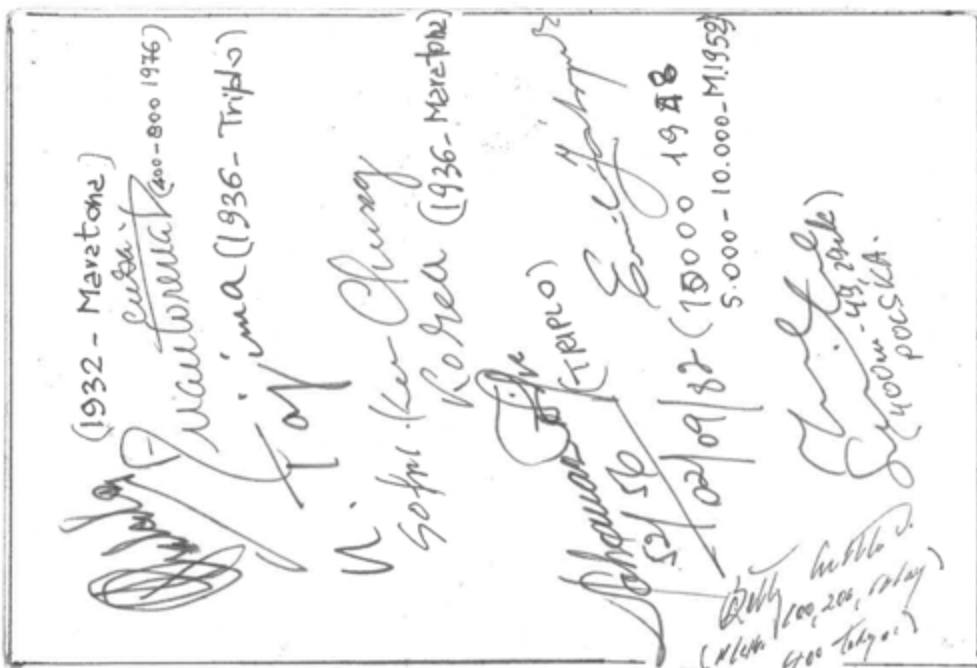 (1932 - Maratona)
Cuba
Juantorena (400-800 1976)
N. Tajima (1936 - Triplo)
Sohn. Kee Chung
Korea (1936 - Maratona)
Adhemar
(TRIPLO)
52/56
02/09/82
Emil
(10000 1948
5.000 - 10.000 - M.1952)
(400m - 49,29
POLSKA.
Betty Cuthbert
100, 200, relay
400 Tokyo